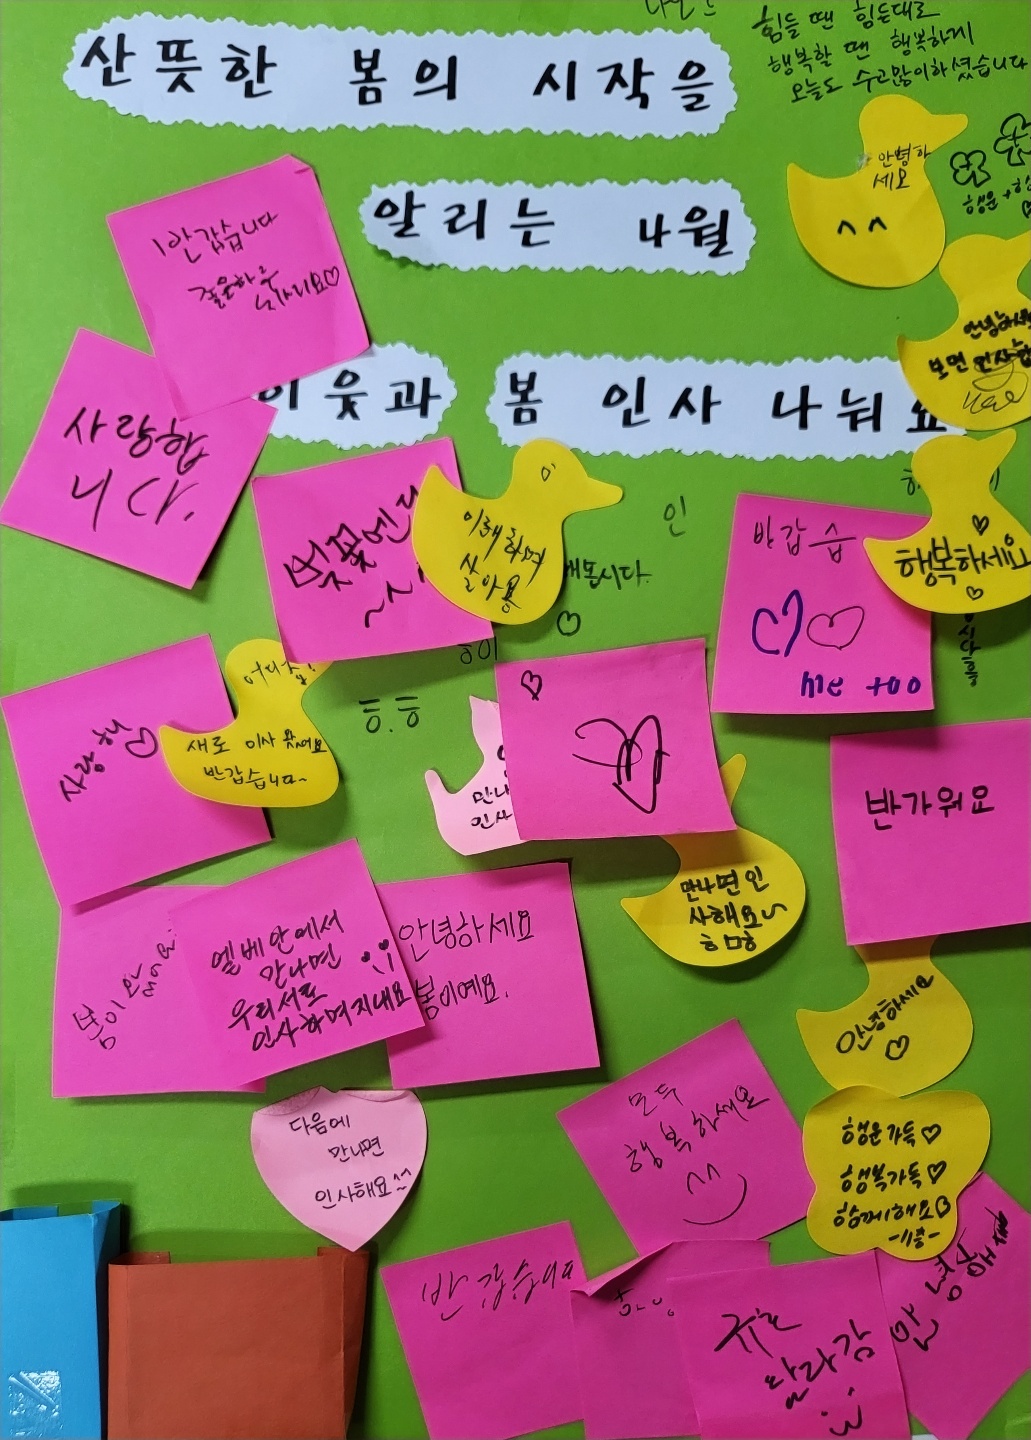 산뜻한 봄의 시작을
알리는 4월
이웃과 봄 인사 나눠요
힘들 땐 힘든대로
행복할 땐 행복하게
오늘도 수고많이하셨습니다
안녕하
세요
^^
행운
반갑습니다
좋은하루
되시리요♡
사랑합
니다.
벚꽃엔
이해하며
살아용
인
♡
반갑습
♡♡
me too
행복하세요
♡
안녕하세
보면 인사합
사랑해♡
새로 이사 왔어요
반갑습니다~
ㅎ.ㅎ
만나
인사
♡
반가워요
만나면 인
사해요~
ㅎㅁㅎ
봄이 왔어요.
엘베 안에서
만나면
우리서로
인사하며지내요
안녕하세요
봄이예요.
안녕하세요
♡
다음에
만나면
인사해요^^
모두
행복하세요
^^
행운가득♡
행복가득♡
함께해요♡
-11층-
반갑습니다
안녕